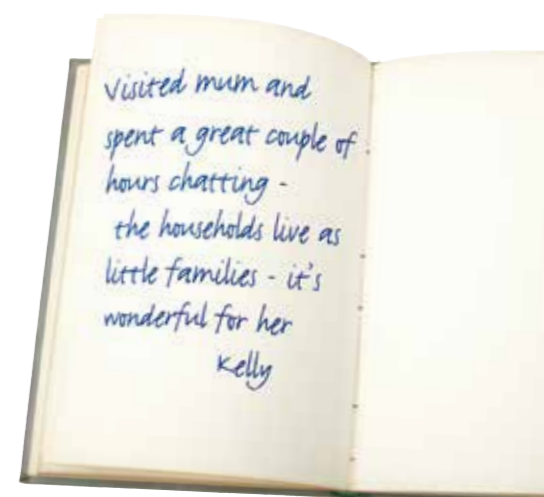 Visited mum and
spent a great couple of
hours chatting -
the households live as
little families - it's
wonderful for her
Kelly